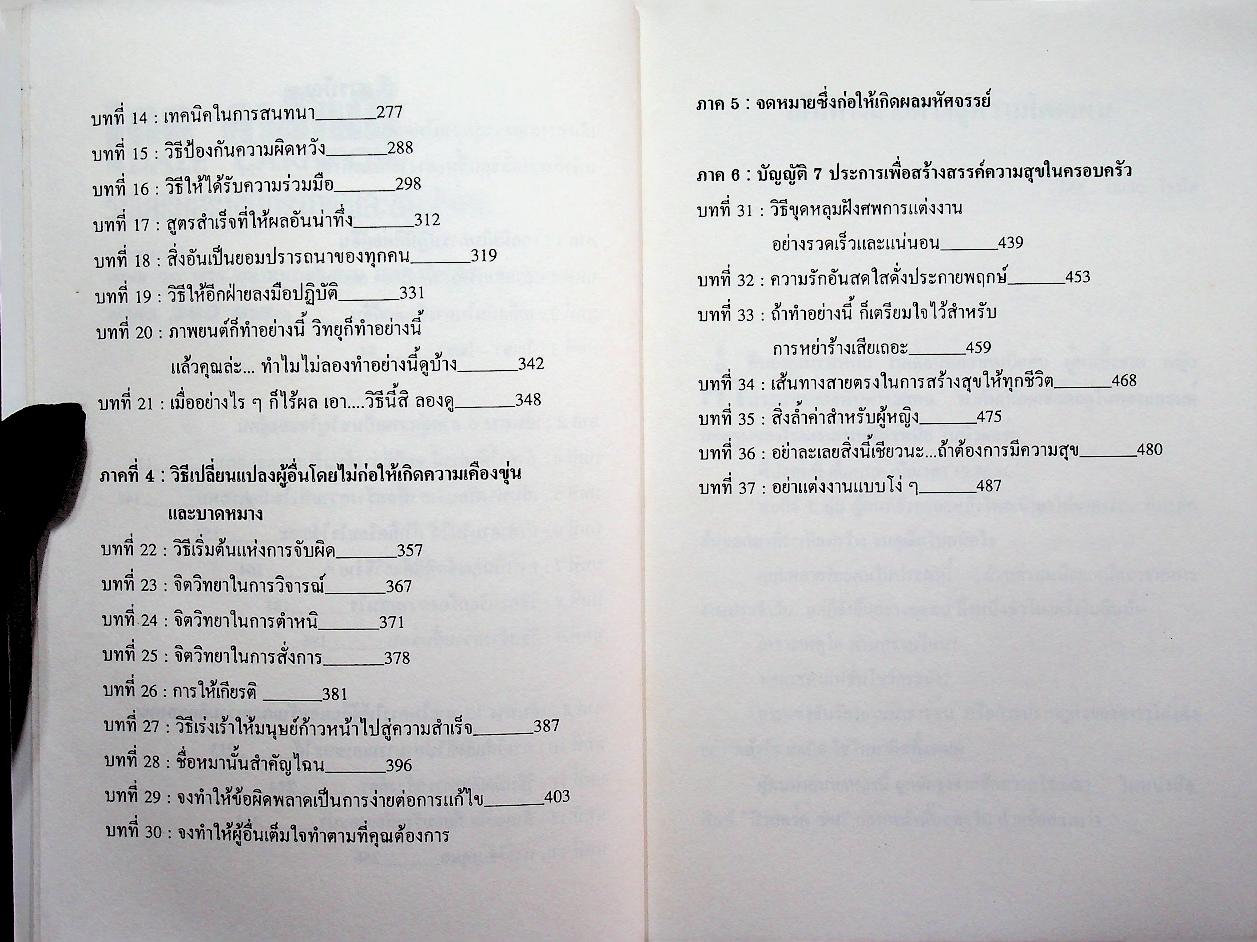 บทที่ 14 : เทคนิคในการสนทนา______277
บทที่ 15 : วิธีป้องกันความผิดหวัง______288
บทที่ 16 : วิธีให้ได้รับความร่วมมือ______298
บทที่ 17 : สูตรสำเร็จที่ให้ผลอันน่าทึ่ง______312
บทที่ 18 : สิ่งอันเป็นยอมปรารถนาของทุกคน______319
บทที่ 19 : วิธีให้อีกฝ่ายลงมือปฏิบัติ______331
บทที่ 20 : ภาพยนต์ก็ทำอย่างนี้ วิทยุก็ทำอย่างนี้
แล้วคุณล่ะ... ทำไมไม่ลองทำอย่างนี้ดูบ้าง______342
บทที่ 21 : เมื่ออย่างไร ๆ ก็ไร้ผล เอา....วิธีนี้สิ ลองดู______348
ภาคที่ 4 : วิธีเปลี่ยนแปลงผู้อื่นโดยไม่ก่อให้เกิดความเคืองขุ่น
และบาดหมาง
บทที่ 22 : วิธีเริ่มต้นแห่งการจับผิด______357
บทที่ 23 : จิตวิทยาในการวิจารณ์______367
บทที่ 24 : จิตวิทยาในการตำหนิ______371
บทที่ 25 : จิตวิทยาในการสั่งการ______378
บทที่ 26 : การให้เกียรติ ______381
บทที่ 27 : วิธีเร่งเร้าให้มนุษย์ก้าวหน้าไปสู่ความสำเร็จ______387
บทที่ 28 : ชื่อหมานั้นสำคัญไฉน______396
บทที่ 29 : จงทำให้ข้อผิดพลาดเป็นการง่ายต่อการแก้ไข______403
บทที่ 30 : จงทำให้ผู้อื่นเต็มใจทำตามที่คุณต้องการ
ภาค 5 : จดหมายซึ่งก่อให้เกิดผลมหัศจรรย์
ภาค 6 : บัญญัติ 7 ประการเพื่อสร้างสรรค์ความสุขในครอบครัว
บทที่ 31 : วิธีขุดหลุมฝังศพการแต่งงาน
อย่างรวดเร็วและแน่นอน______439
บทที่ 32 : ความรักอันสดใสดั่งประกายพฤกษ์______453
บทที่ 33 : ถ้าทำอย่างนี้ ก็เตรียมใจไว้สำหรับ
การหย่าร้างเสียเถอะ______459
บทที่ 34 : เส้นทางสายตรงในการสร้างสุขให้ทุกชีวิต______468
บทที่ 35 : สิ่งล้ำค่าสำหรับผู้หญิง______475
บทที่ 36 : อย่าละเลยสิ่งนี้เชียวนะ...ถ้าต้องการมีความสุข______480
บทที่ 37 : อย่าแต่งงานแบบโง่ ๆ______487